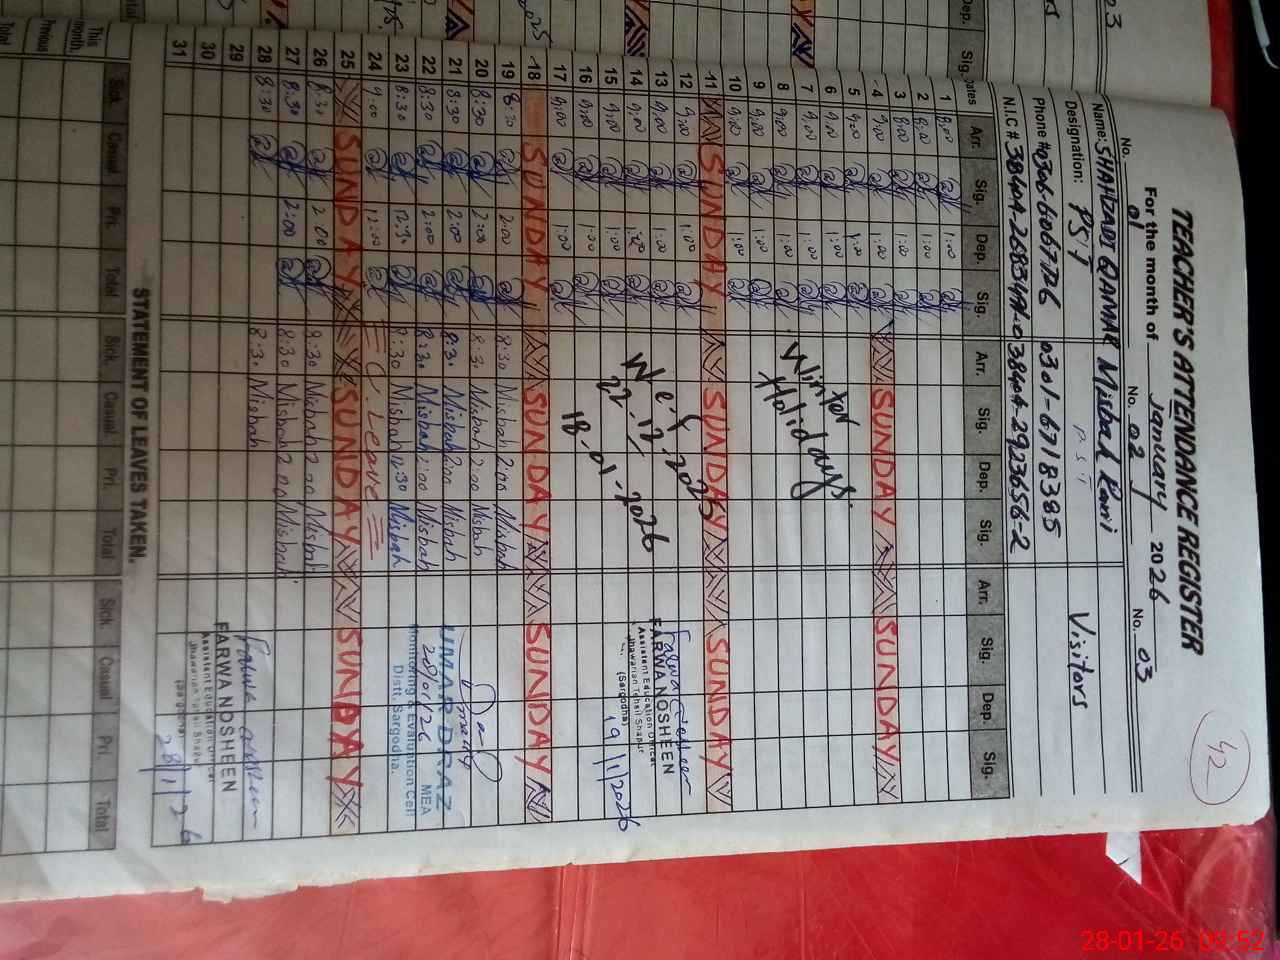 TEACHER'S ATTENDANCE REGISTER
42
For the month of January 2026
No. 01 No. 02 No. 03
Name: SHAHDADI QAMAR Misbah Rani Visitors
Designation: PST PST
Phone #
0301-6718385
N.I.C #
38404-2923656-2
Dates Arr. Sig. Dep. Sig. Arr. Sig. Dep. Sig. Arr. Sig. Dep. Sig.
1 8:00 1:00
2 8:00 1:00
3 8:00 1:00
4 9:00 1:00 SUNDAY SUNDAY
5 9:00 1:00
6 9:00 1:00
7 9:00 1:00
8 9:00 1:00
9 9:00 1:00
10 9:00 1:00
Winter
Holidays
11 SUNDAY SUNDAY SUNDAY
12 9:00 1:00
13 9:00 1:00
14 9:00 1:00
15 9:00 1:00
16 9:00 1:00
17 9:00 1:00
W.e.f
22-12-2025
18-01-2026
FARWA NOSHEEN
Assistent Education Officer
Jhawarian Tehsil Shapur
(Sargodha)
19/1/2026
18 SUNDAY SUNDAY SUNDAY
19 8:30 2:00 8:30 Misbah 2:00 Misbah
20 8:30 2:00 8:30 Misbah 2:00 Misbah
21 8:30 2:00 8:30 Misbah 2:00 Misbah
22 8:30 2:00 8:30 Misbah 2:00 Misbah
23 8:30 12:30 8:30 Misbah 12:30 Misbah
24 9:00 12:00 C. Leave
UMAR DRAZ
MEA
20/01/26
Monitoring & Evaluation Cell
Distt. Sargodha.
25 SUNDAY SUNDAY SUNDAY
26 8:30 2:00 8:30 Misbah 2:00 Misbah
27 8:30 2:00 8:30 Misbah 2:00 Misbah
28 8:30 8:30 Misbah
29
30
31
FARWA NOSHEEN
Assistent Education Officer
Jhawarian Tehsil Shapur
(Sargodha)
28/1/26
STATEMENT OF LEAVES TAKEN.
Sick. Casual Pri. Total Sick. Casual. Pri. Total Sick. Casual. Pri. Total
This month.
Previous
Total
28-01-26 09:52